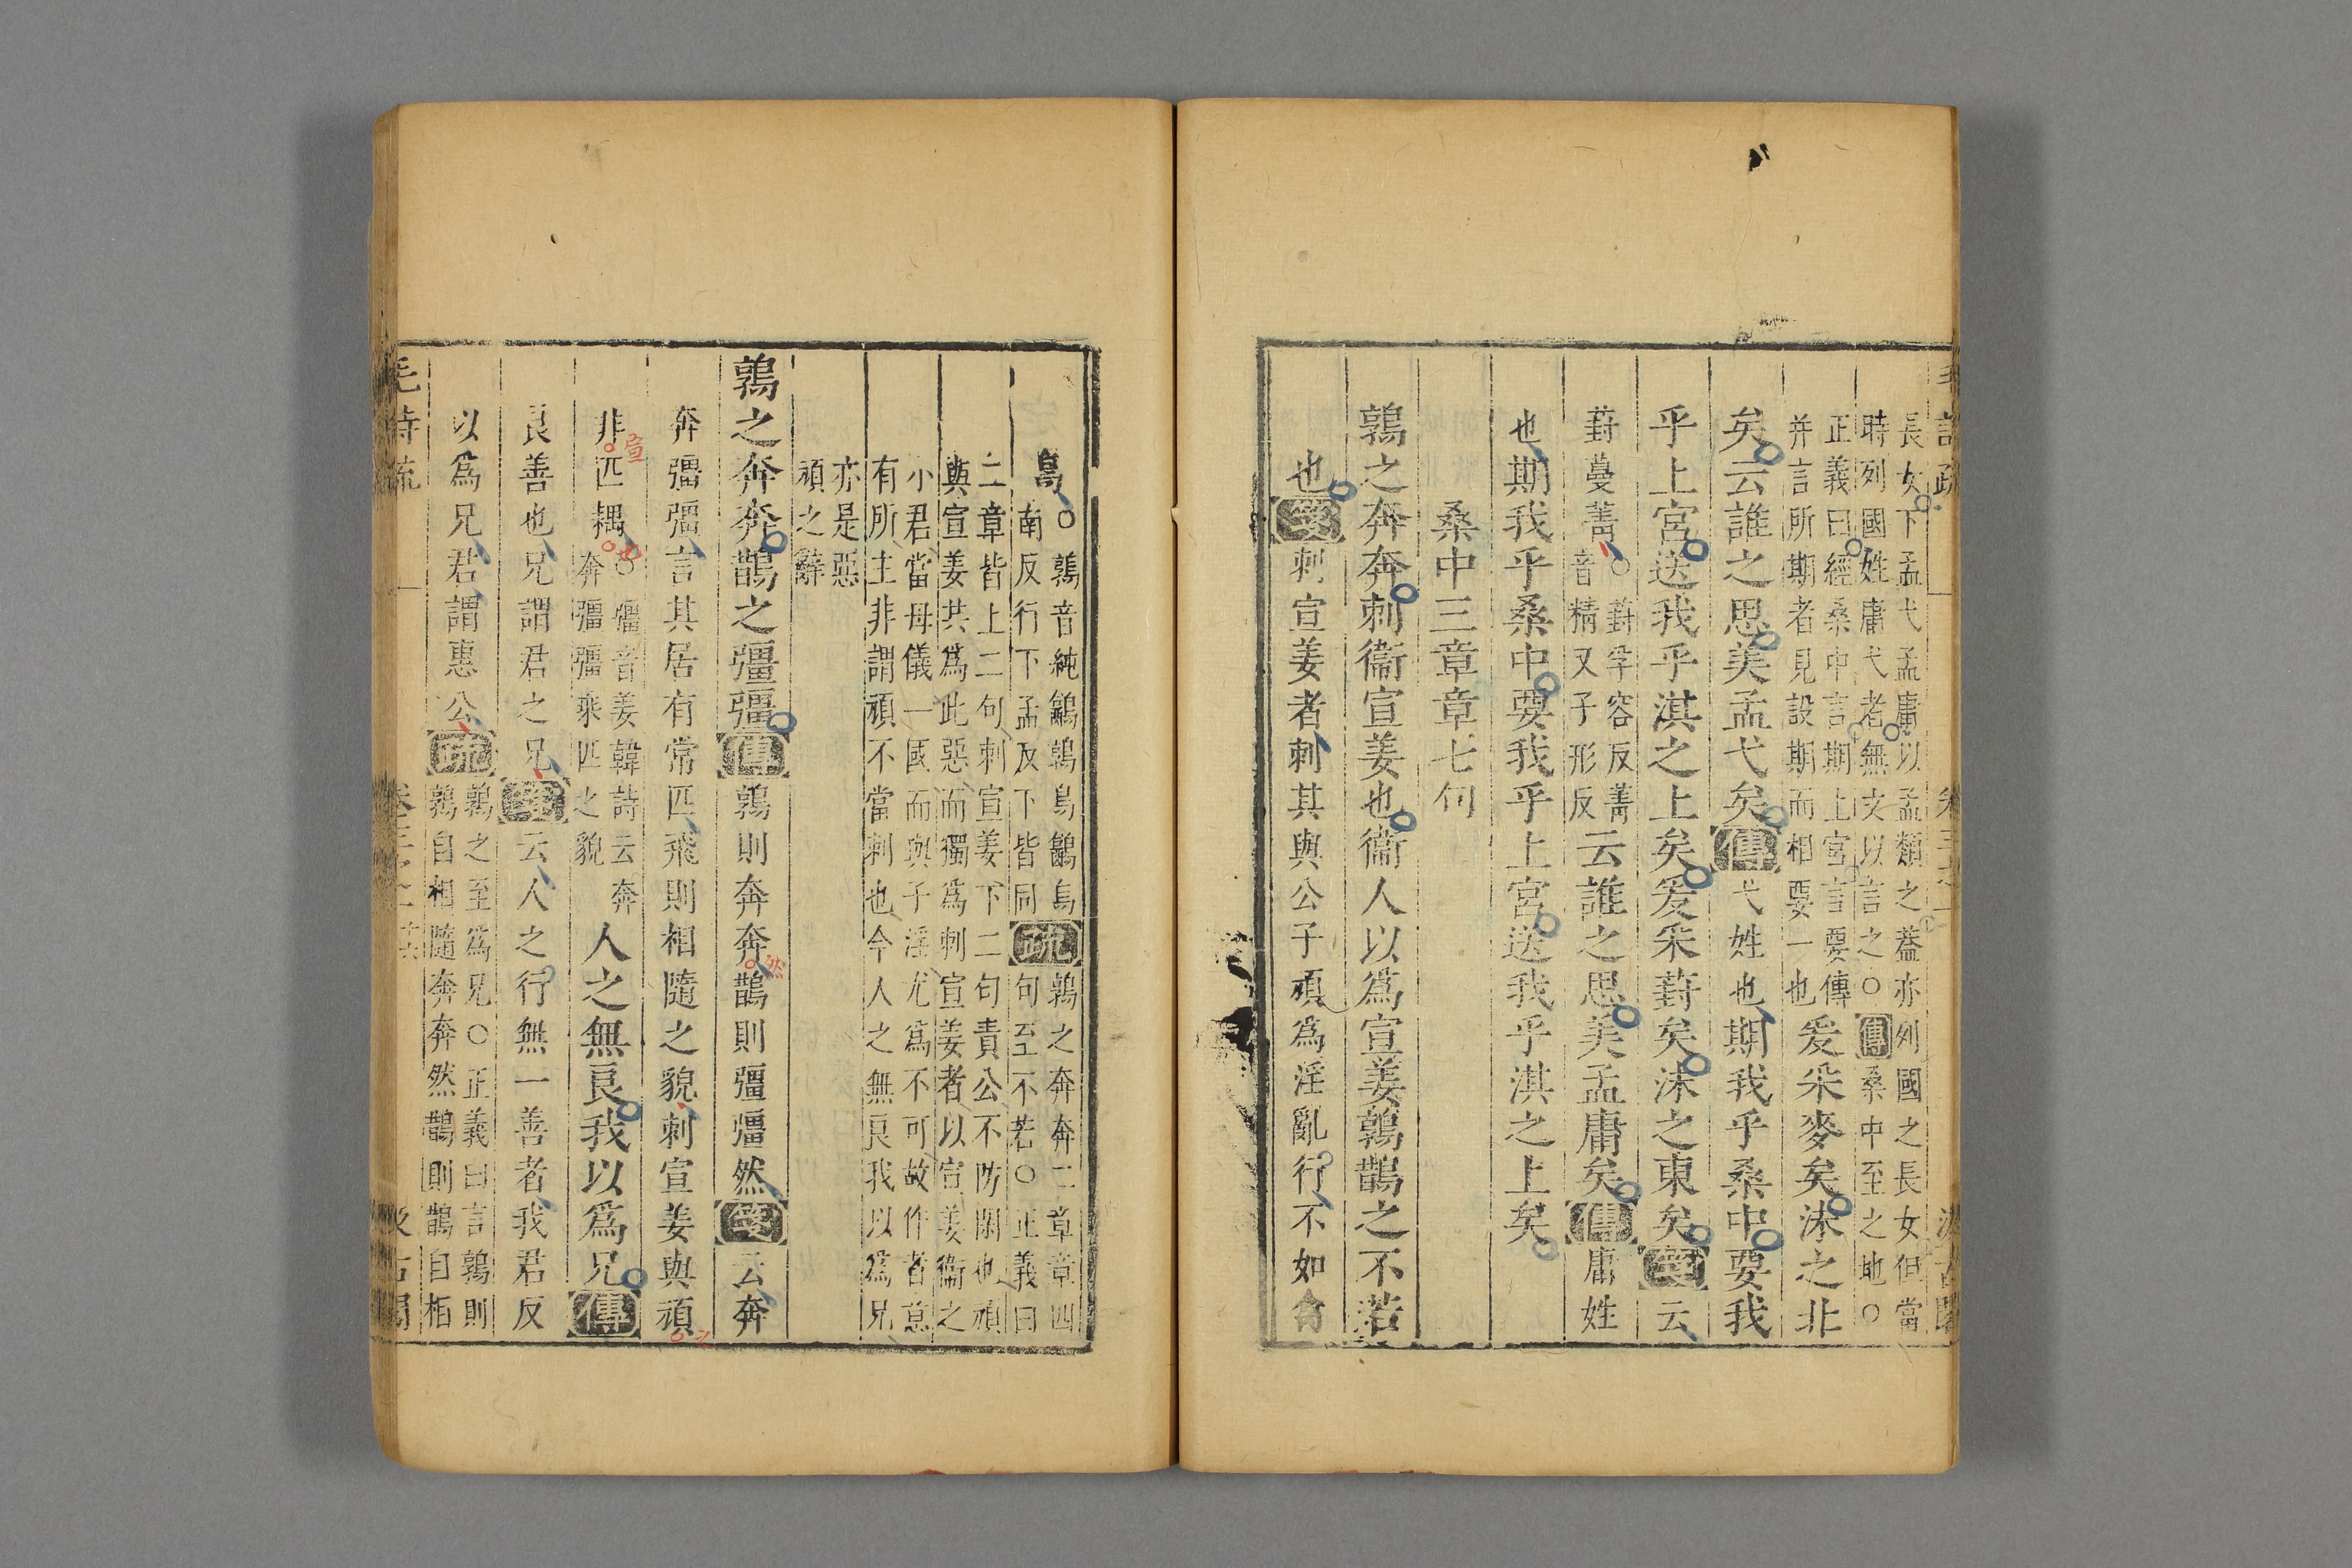 詩疏　卷三之一　汲古閣
長女下孟弋孟庸以孟類之蓋亦列國之長女但當
時列國姓庸弋者無文以言之○傳桑中至之地○
正義曰經桑中言期上宮言要傳
并言所期者見設期而相要一也爰采麥矣沬之北
矣云誰之思美孟弋矣傳弋姓也期我乎桑中要我
乎上宮送我乎淇之上矣爰采葑矣沬之東矣箋云
葑蔓菁○葑孚容反菁
音精又子形反云誰之思美孟庸矣傳庸姓
也期我乎桑中要我乎上宮送我乎淇之上矣
桑中三章章七句
鶉之奔奔刺衞宣姜也衞人以爲宣姜鶉鵲之不若
也箋刺宣姜者刺其與公子頑爲淫亂行不如禽
鳥○鶉音純鶕鶉鳥鶕烏
南反行下孟反下皆同疏鶉之奔奔二章章四
句至不若○正義曰
二章皆上二句刺宣姜下二句責公不防閑也頑
與宣姜共爲此惡而獨爲刺宣姜者以宣姜衞之
小君當母儀一國而與子淫尤爲不可故作者意
有所主非謂頑不當刺也今人之無良我以爲兄
亦是惡
頑之辭
鶉之奔奔鵲之彊彊傳鶉則奔奔鵲則彊彊然箋云奔
奔彊彊言其居有常匹飛則相隨之貌刺宣姜與頑
非匹耦○彊音姜韓詩云奔
奔彊彊乘匹之貌人之無良我以爲兄傳
良善也兄謂君之兄箋云人之行無一善者我君反
以爲兄君謂惠公疏鶉之至爲兄○正義曰言鶉則
鶉自相隨奔奔然鵲則鵲自相
毛詩疏　卷三之一　汲古閣